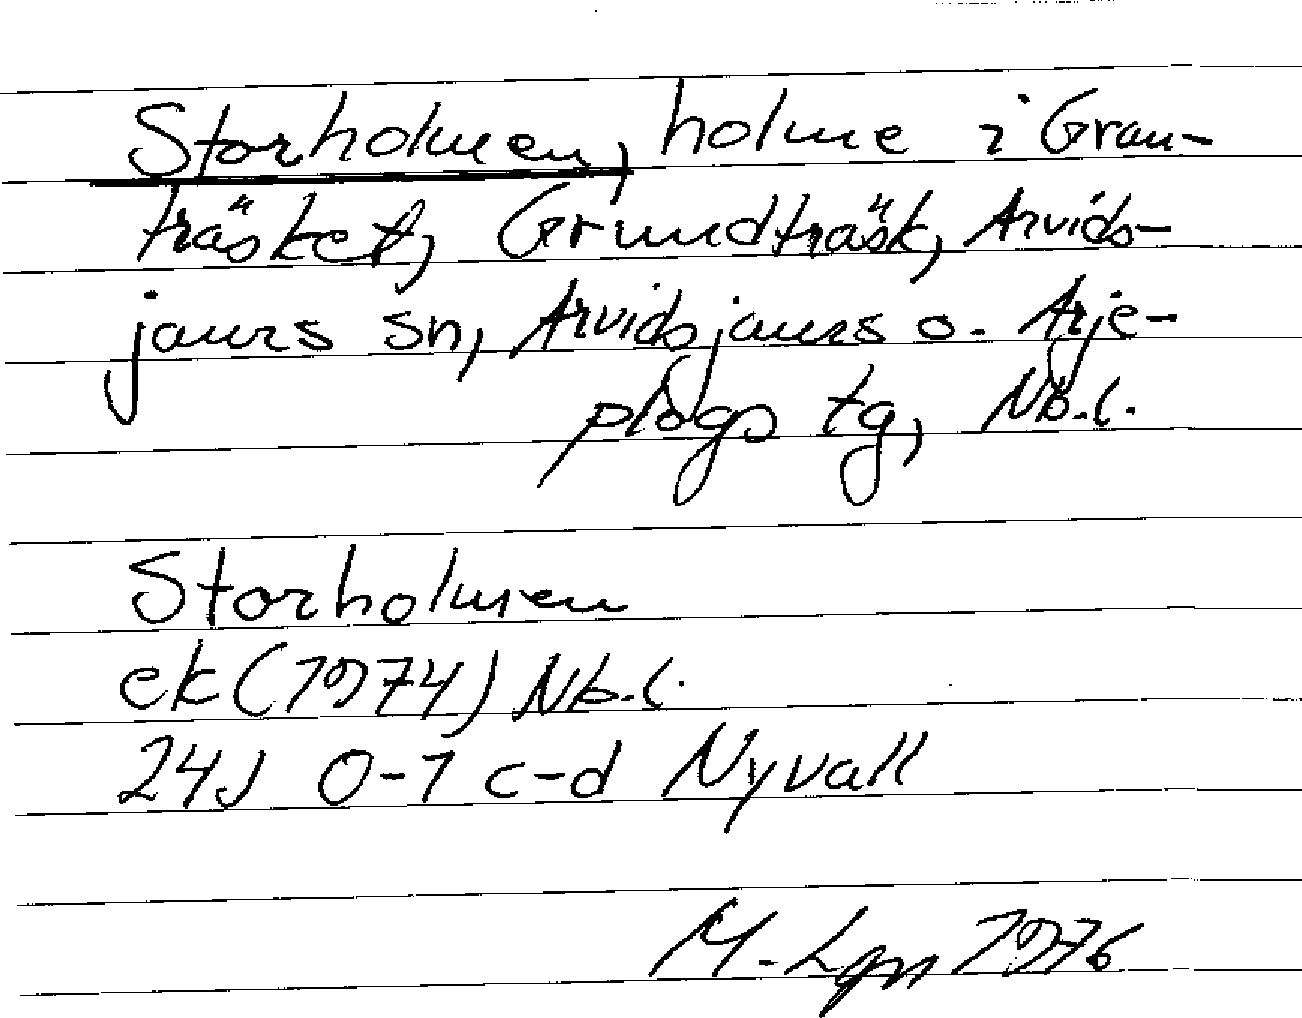 Storholmen, holme i Gran-
träsket, Grundträsk, Arvids-
jaurs sn, Arvidsjaurs o. Arje-
plogs tg, Nb.l.
Storholmen
ek (1974) Nb.l.
24J 0-1 c-d Nyvall
M-Lgn 1976